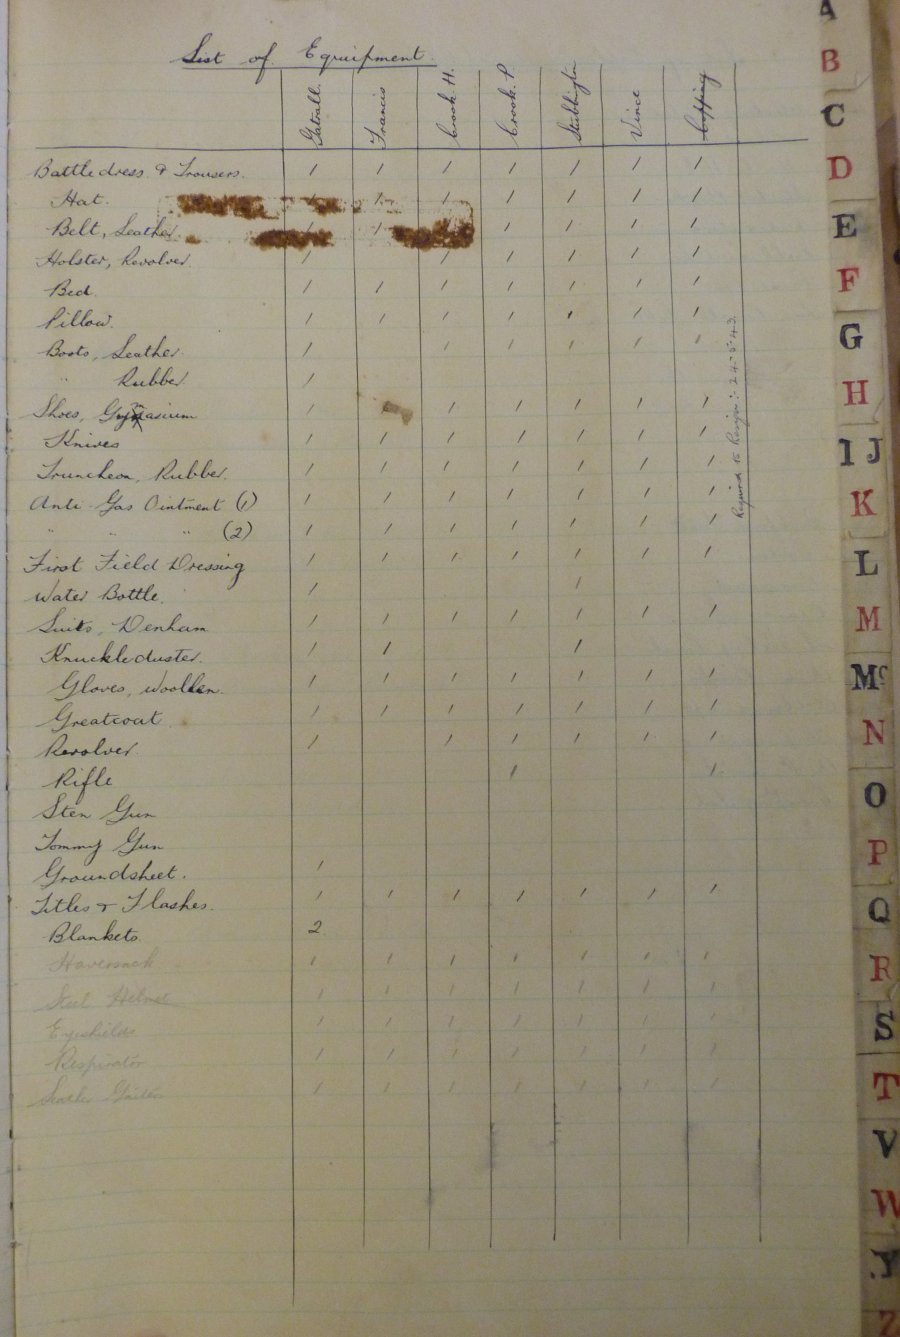 List of Equipment.
Gatrall. Francis Crook. H. Crook. P. Stubbington Vince Copping
Battledress & Trousers. / / / / / / /
Hat. / / / / / / /
Belt, Leather / / / / / /
Holster, Revolver. / / / / / /
Bed. / / / / / / /
Pillow. / / / / / / /
Boots, Leather. / / / / / /
" Rubber. /
Shoes, Gymnasium / / / / / /
Knives / / / / / / /
Truncheon, Rubber. / / / / / / /
Anti-Gas Ointment (1) / / / / / / /
" " " (2) / / / / / / /
First Field Dressing / / / / / / /
Water Bottle. / /
Suits, Denham / / / / / / /
Knuckleduster. / / /
Gloves, woollen. / / / / / / /
Greatcoat. / / / / / / /
Revolver. / / / / / /
Rifle / /
Sten Gun
Tommy Gun
Groundsheet. /
Titles & Flashes. / / / / / / /
Blankets. 2.
Haversack / / / / / / /
Steel Helmet / / / / / / /
Eyeshields / / / / / / /
Respirator / / / / / / /
Leather Gaiters / / / / / / /
Required to Resign :- 24-5-43.
A
B
C
D
E
F
G
H
I J
K
L
M
Mc
N
O
P
Q
R
S
T
V
W
Y
Z